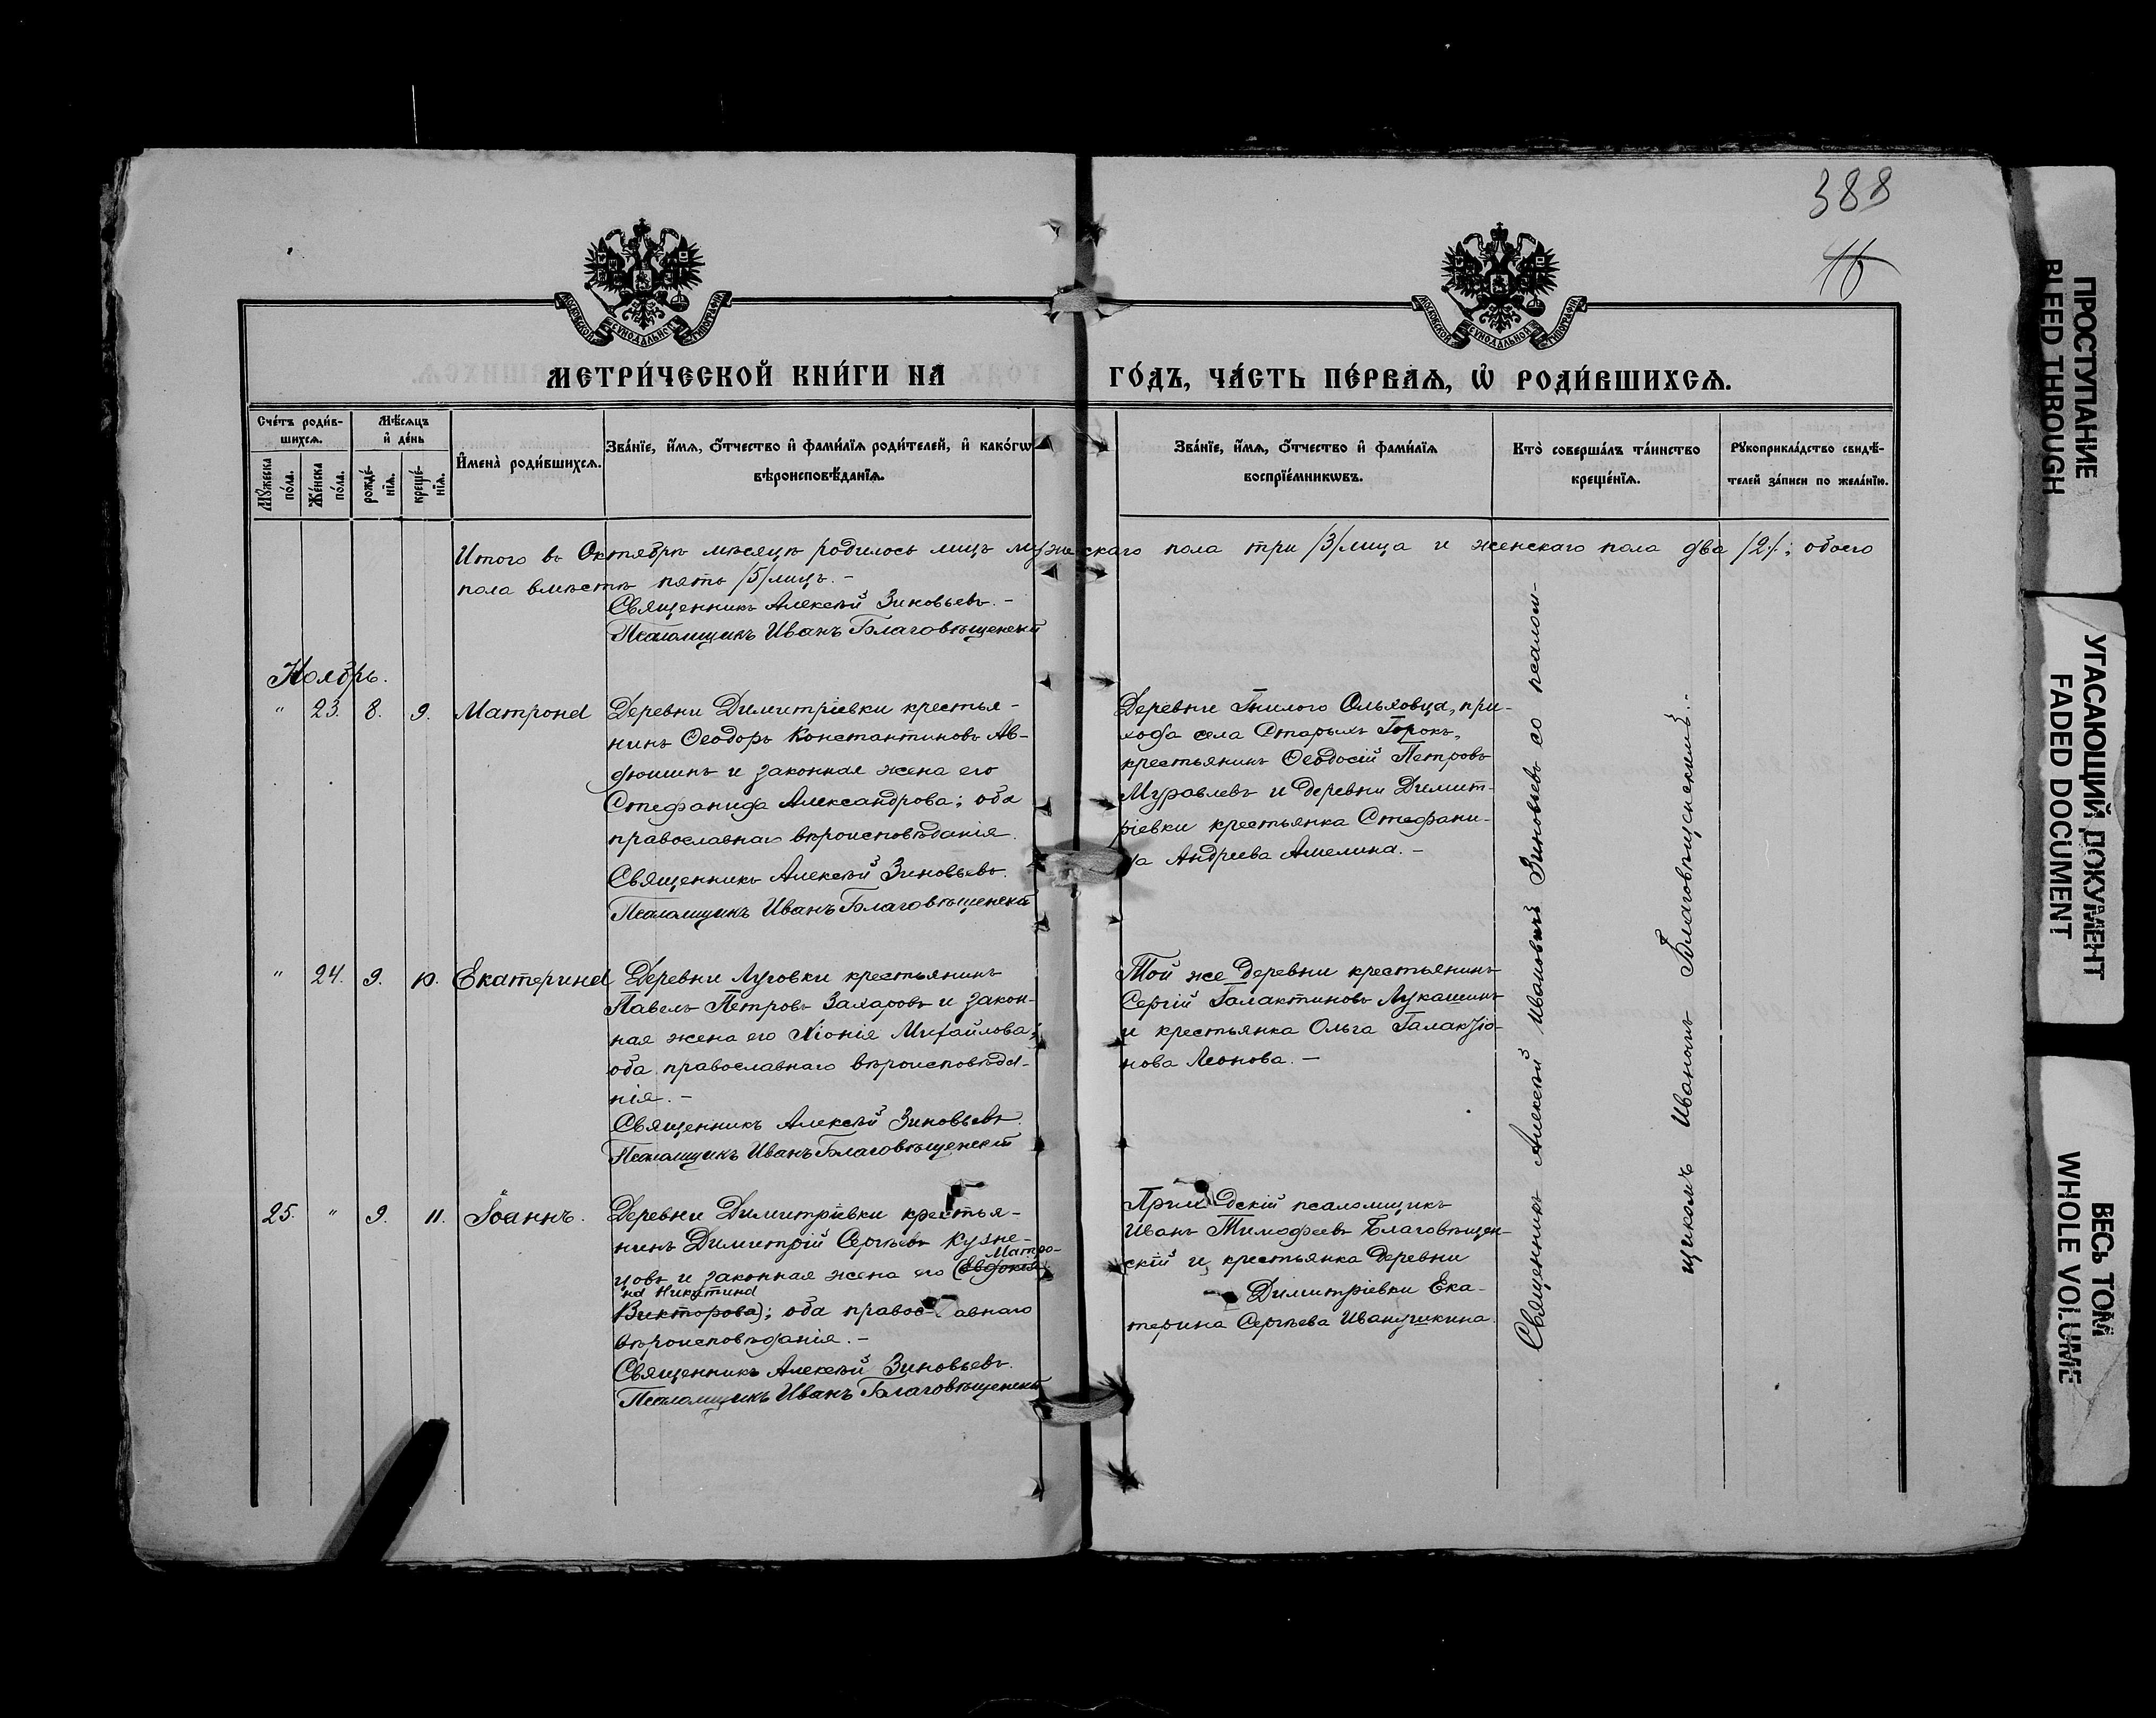 388
46
МОСКОВСКОЙ СѴНОДАЛЬНОЙ ТИПОГРАФІИ
МОСКОВСКОЙ СѴНОДАЛЬНОЙ ТИПОГРАФІИ
МЕТРИ́ЧЕСКОЙ КНИ́ГИ НА ГО́ДЪ, ЧА́СТЬ ПЕ́РВАѦ, Ѡ҆ РОДИ́ВШИХСѦ.
Сче́тъ роди́в-
шихсѧ.
Мѣ́сѧцъ
и҆ де́нь
Мꙋ́жеска по́ла.
Же́нска по́ла.
рожде́-нїѧ.
креще́-нїѧ.
И҆мена̀ роди́вшихсѧ.
Зва́нїе, и҆́мѧ, ѻ҆́тчество и҆ фами́лїѧ роди́телей, и҆ како́гѡ
вѣроисповѣ́данїѧ.
Зва́нїе, и҆́мѧ, ѻ҆́тчество и҆ фами́лїѧ
воспрїе́мникѡвъ.
Кто̀ соверша́лъ та́инство
креще́нїѧ.
Рꙋкоприкла́дство свидѣ́-
телей за́писи по жела́нїю.
Итого въ Октябрѣ мѣсяцѣ родилось лицъ мужескаго пола три /3/ лица и женскаго пола два /2/; обоего
пола вмѣстѣ пять /5/ лицъ. -
Священникъ Алексѣй Зиновьевъ. -
Псаломщикъ Иванъ Благовѣщенскій
Ноябрь.
" 23. 8. 9. Матрона
Деревни Димитріевки крестья-
нинъ Ѳеодоръ Константиновъ Ав-
дюшинъ и законная жена его
Стефанида Александрова; оба
православнаго вѣроисповѣданія.
Священникъ Алексѣй Зиновьевъ.
Псаломщикъ Иванъ Благовѣщенскій
Деревни Гнилого Ольховца, при-
хода села Старыхъ Горокъ,
крестьянинъ Ѳеодосій Петровъ
Муравлевъ и деревни Димит-
ріевки крестьянка Стефани-
да Андреева Амелина. -
" 24. 9. 10. Екатерина
Деревни Луговки крестьянинъ
Павелъ Петровъ Захаровъ и закон-
ная жена его Хіонія Михайлова;
оба православнаго вѣроисповѣда-
нія. -
Священникъ Алексѣй Зиновьевъ.
Псаломщикъ Иванъ Благовѣщенскій
Той же деревни крестьянинъ
Сергій Галактиновъ Лукашинъ
и крестьянка Ольга Галактіо-
нова Леонова. -
25. " 9. 11. Іоаннъ.
Деревни Димитріевки крестья-
нинъ Димитрій Сергѣевъ Кузне-
Матро-
цовъ и законная жена его (Евдокія
на Никитина
Викторова); оба православнаго
вѣроисповѣданія. -
Священникъ Алексѣй Зиновьевъ.
Псаломщикъ Иванъ Благовѣщенскій
Приходскій псаломщикъ
Иванъ Тимофеевъ Благовѣщен-
скій и крестьянка деревни
Димитріевки Ека-
терина Сергѣева Иванушкина.
Священникъ Алексѣй Ивановичъ Зиновьевъ со псалом-
щикомъ Иваномъ Благовѣщенскимъ. .
ПРОСТУПАНИЕ
BLEED THROUGH
УГАСАЮЩИЙ ДОКУМЕНТ
FADED DOCUMENT
ВЕСЬ ТОМ
WHOLE VOLUME